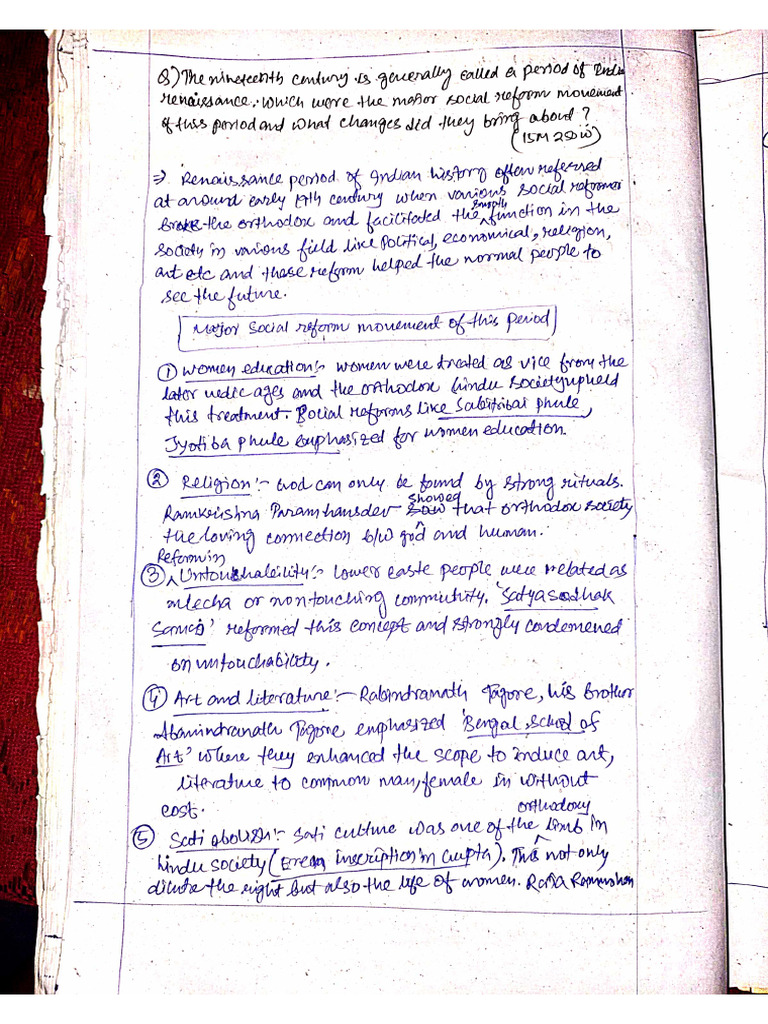 Q) The nineteenth century is generally called a period of Indian
renaissance. Which were the major social reform movement
of this period and what changes did they bring about?
(15M 250W)
⇒ Renaissance period of Indian history often referred
at around early 19th century when various social reformer
broke the orthodox and facilitated the smooth function in the
society in various field like Political, economical, religion,
art etc and these reform helped the normal people to
see the future.
Major Social reform movement of this Period
① Women education:- women were treated as vice from the
later vedic ages and the orthodox hindu society upheld
this treatment. Social reforms like Sabitribai phule,
Jyotiba phule emphasized for women education.
② Religion:- God can only be found by strong rituals.
Ramkrishna Paramhansdev showed that orthodox society
the loving connection b/w god and human.
③ Reforming Untouchability:- lower caste people were related as
mlecha or non touching commutity. 'Satyasodhak
Samaj' reformed this concept and strongly condemened
on untouchability.
④ Art and literature:- Rabindranath Tagore, his brother
Abanindranath Tagore emphasized 'Bengal school of
Art' where they enhanced the scope to induce art,
literature to common man, female in without
cost.
⑤ Sati abolish:- Sati culture was one of the orthodoxy limb in
hindu society (Eren inscription in Gupta). This not only
dilute the right but also the life of women. Raja Rammohan